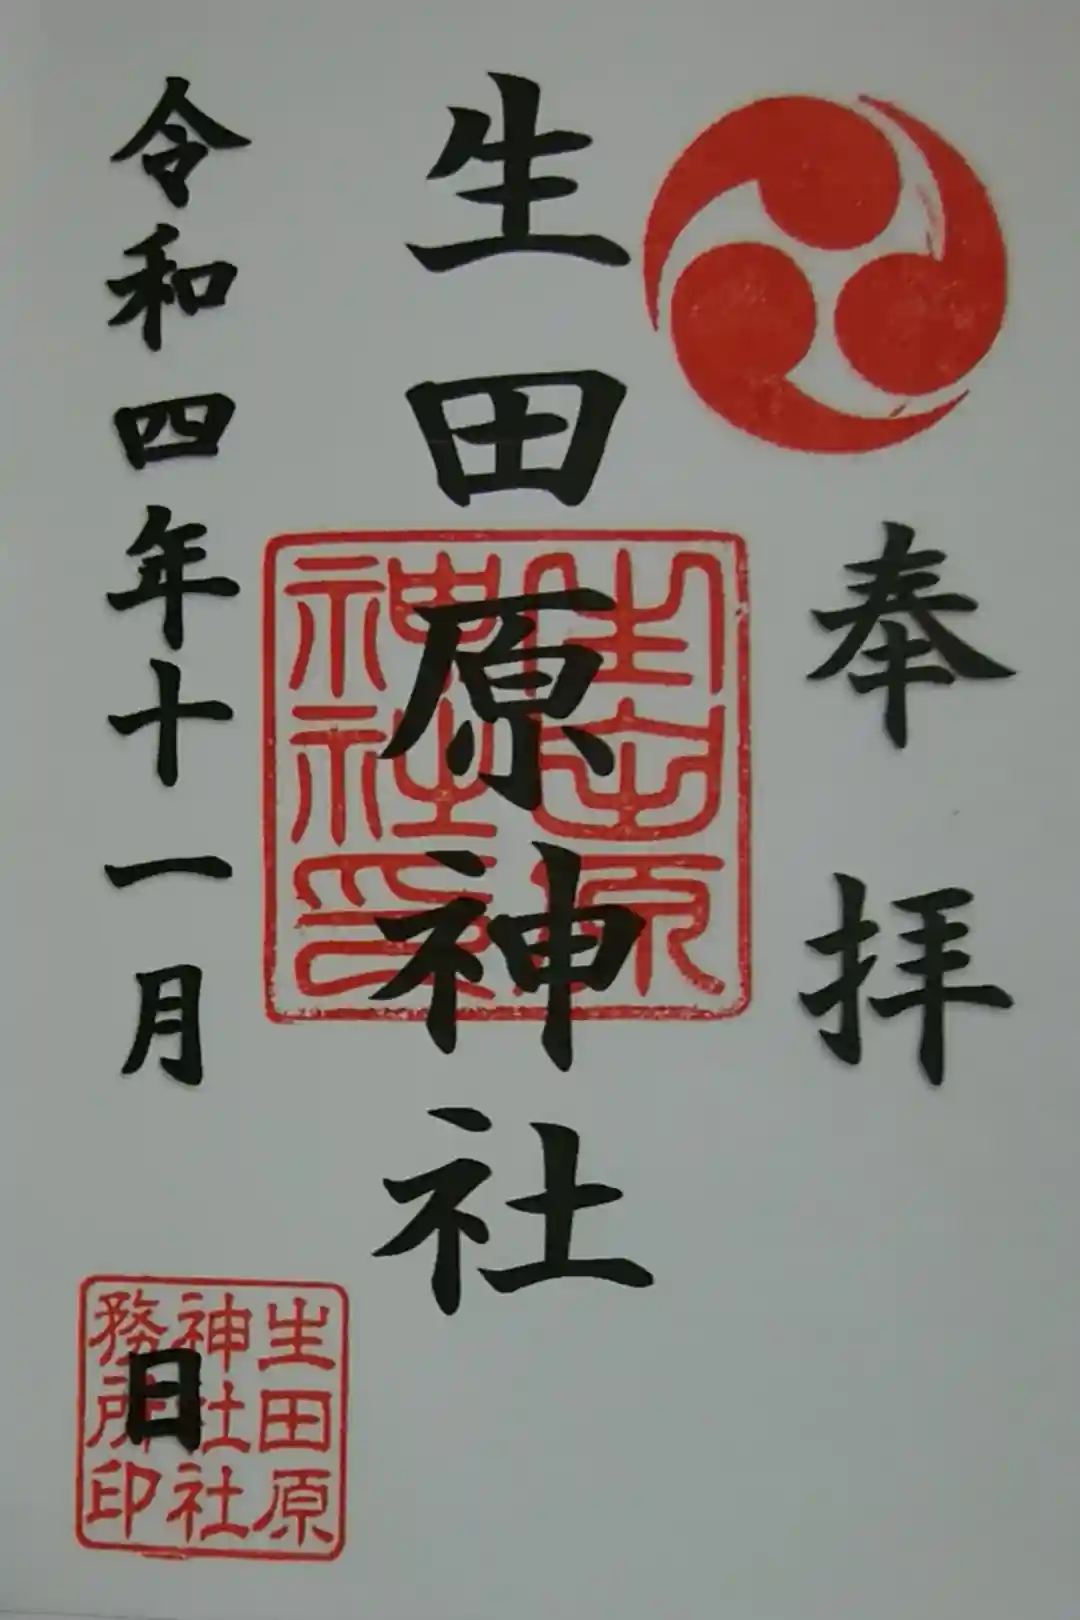 奉拝
生田原神社
生田原
神社印
令和四年十一月 日
生田原
神社社
務所印